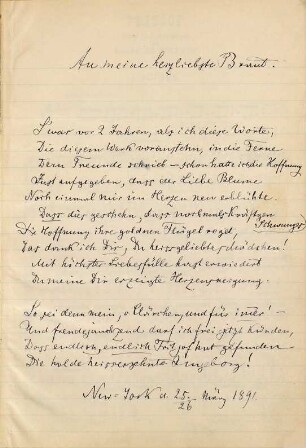 An meine herzliebste Braut.
S'war vor 2 Jahren, als ich diese Worte,
Die diesem Werk voranstehn, in die Ferne
Dem Freunde schrieb – schon hatte ich die Hoffnung
Just aufgegeben, dass der Liebe Blume
Noch einmal mir im Herzen neu erblühte.
Dass dies geschehen, dass nochmals kräftgen Schwunges
Die Hoffnung ihre goldnen Flügel regt,
Das dank ich Dir, Du heissgeliebtes Mädchen!
Mit höchster Liebesfülle hast erwiedert
Du meine Dir erzeigte Herzensneigung.
So sei denn mein, o Clärchen, und für immer! –
Und freudejauchzend darf ich frei jetzt künden,
Dass endlich, endlich Fritjof hat gefunden
Die holde heissersehnte Ingeborg!
New-York d. 25/26 März 1891.